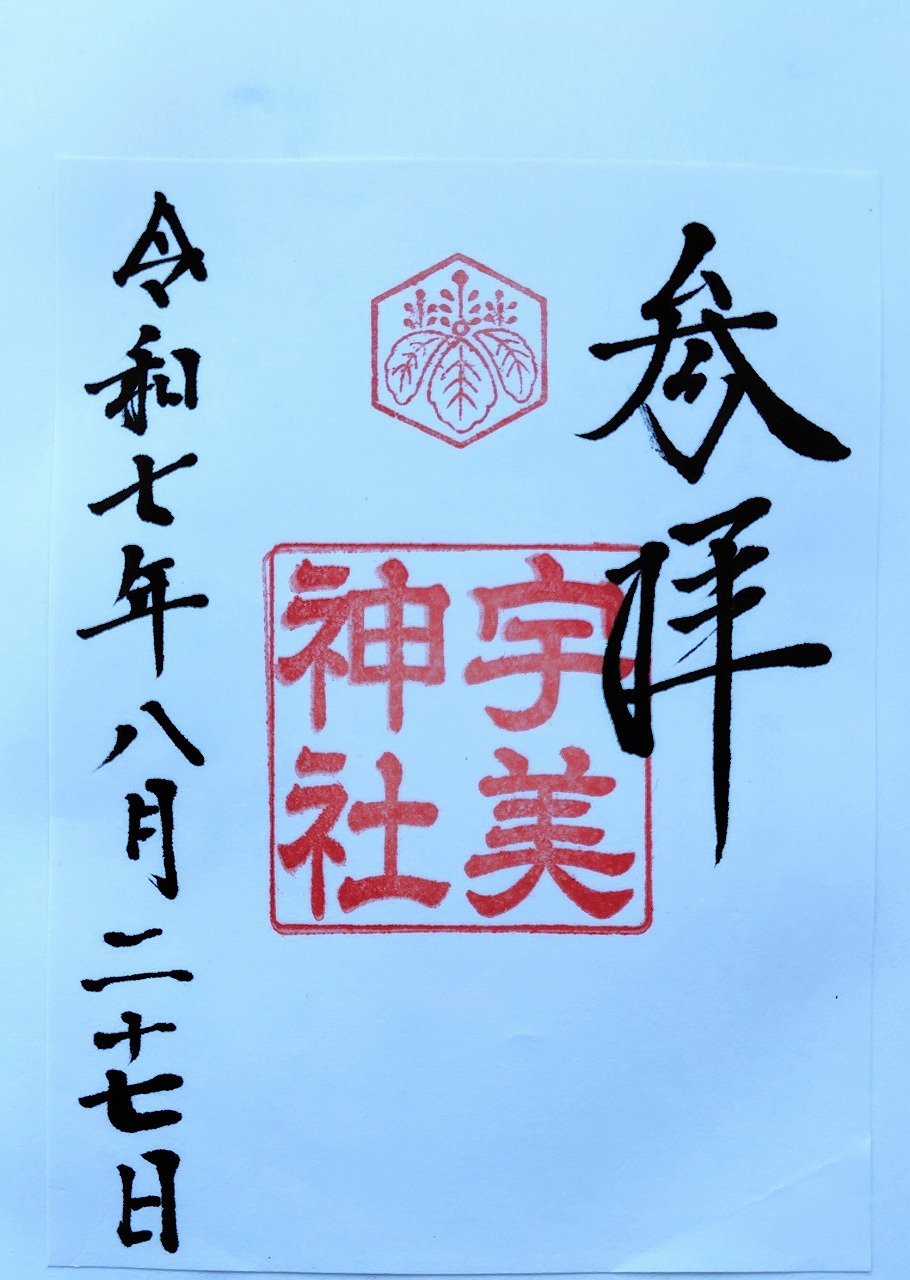 参拝
宇美
神社
令和七年八月二十七日